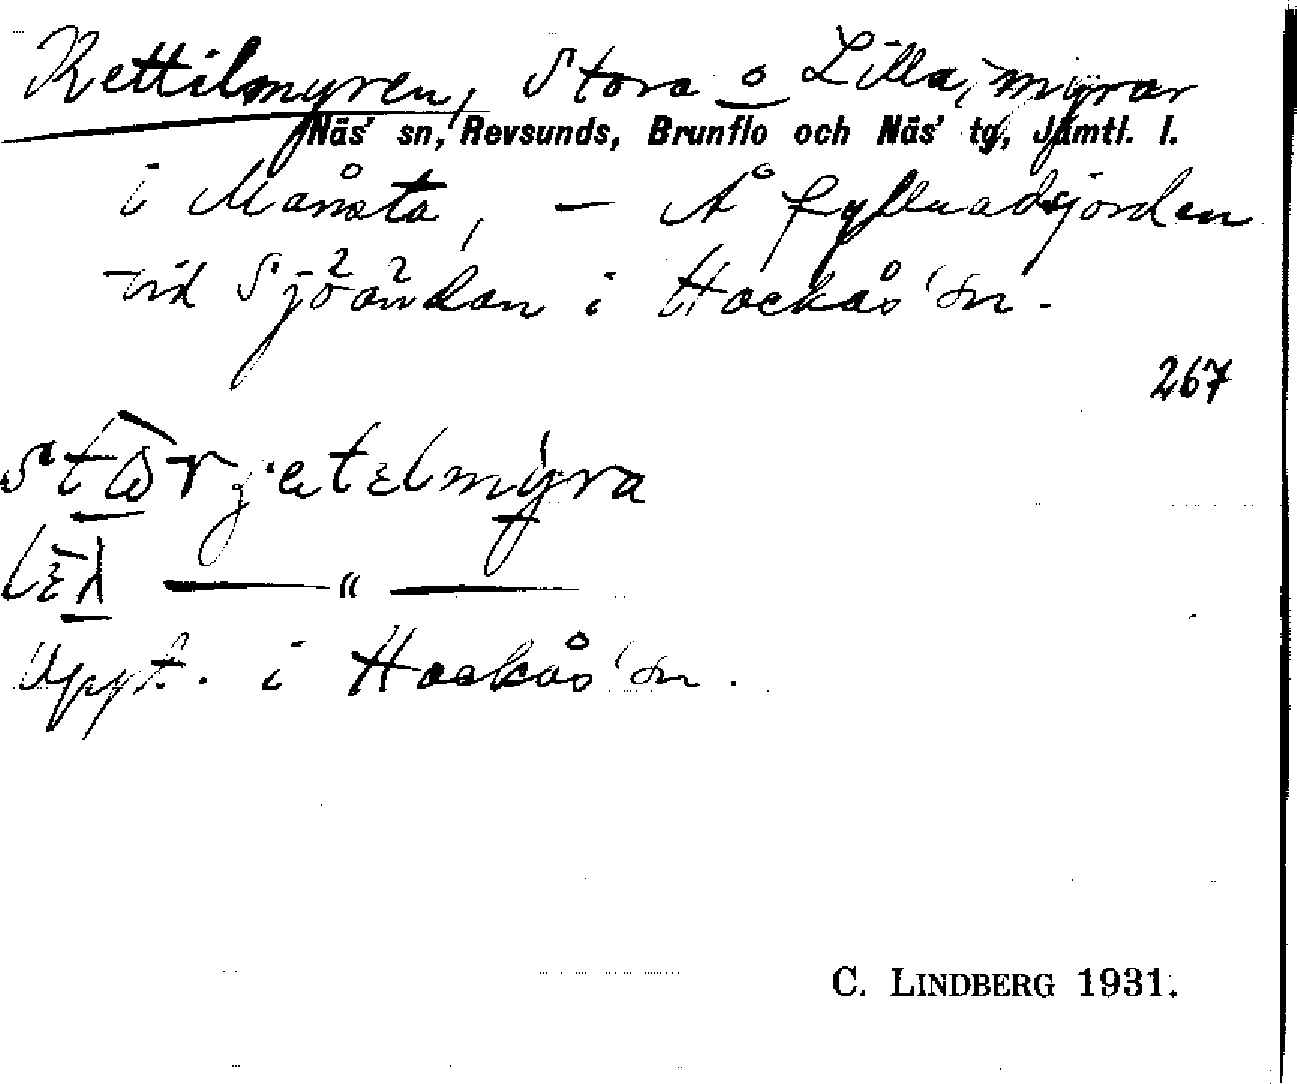 Kettilmyren, Stora o Lilla, myrar
Näs' sn, Revsunds, Brunflo och Näs' tg, Jämtl. l.
i Månsta, – Å fyllnadsjorden
vid Sjöändan i Hackås' sn.
267
myra
— " —
Uppt. i Hackås' sn.
C. LINDBERG 1931.